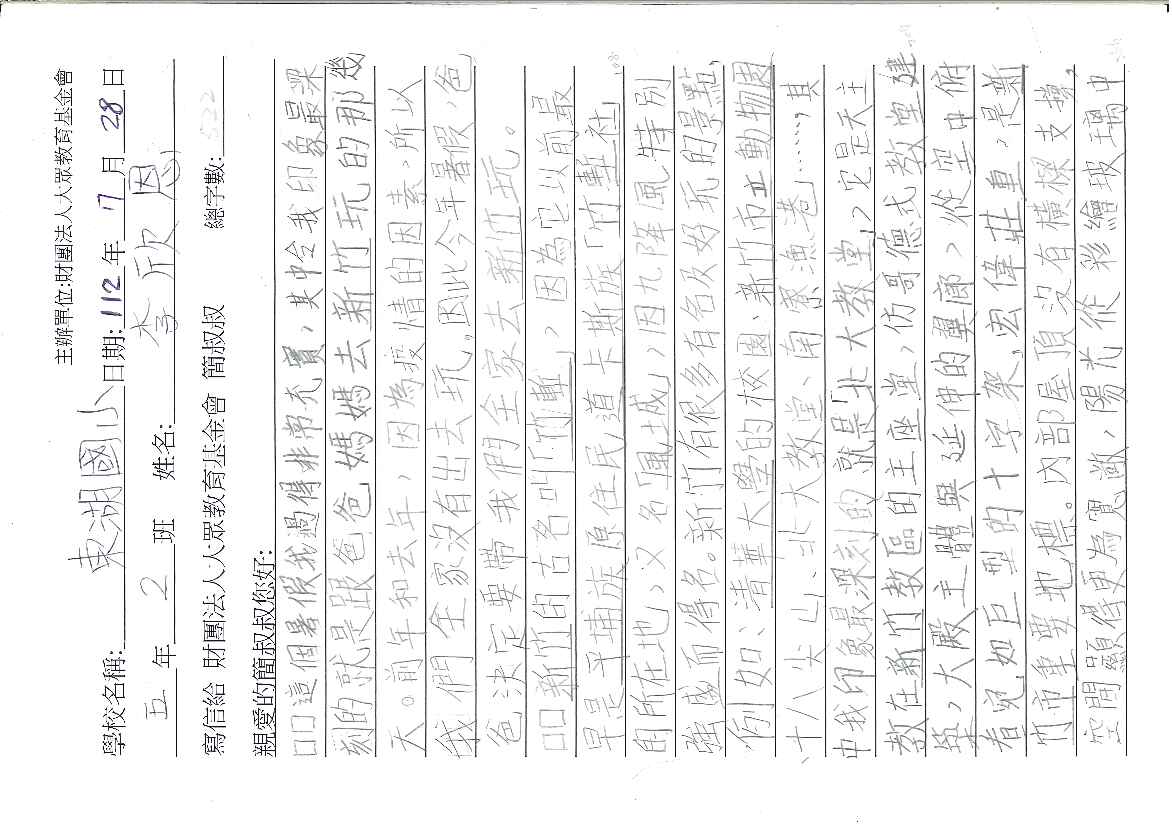 主辦單位:財團法人大眾教育基金會
學校名稱:東湖國小 日期:112年 月28日
五年 2 班 姓名:李欣恩
寫信給 財團法人大眾教育基金會 簡叔叔 總字數:522
親愛的簡叔叔您好:
□□這個暑假我過得非常充實，其中令我印象最深
刻的就是跟爸爸媽媽去新竹玩的那幾
天。前年和去年，因為疫情的因素，所以
我們全家沒有出去玩。因此今年暑假，爸
爸決定要帶我們全家去新竹玩。
□□新竹的古名叫「竹塹」，因為它以前最
早是平埔族原住民道卡斯族「竹塹社」
的所在地，又名風城，因九降風特別
強盛而得名。新竹有很多有名及好玩的景點，
例如、清華大學的校園、新竹市立動物園
十八尖山、北大教堂、南寮漁港……，其
中我印象最深刻的就是「北大教堂」，它是天主
教在新竹教區的主座堂，仿哥德式教堂建
築，大殿主體與延伸的翼廊，從空中俯
看宛如巨型的十字架。宏偉莊重，是新
竹市重要地標。內部屋頂沒有橫樑支撐，
空間顯得更為寬敞，陽光從彩繪玻璃中